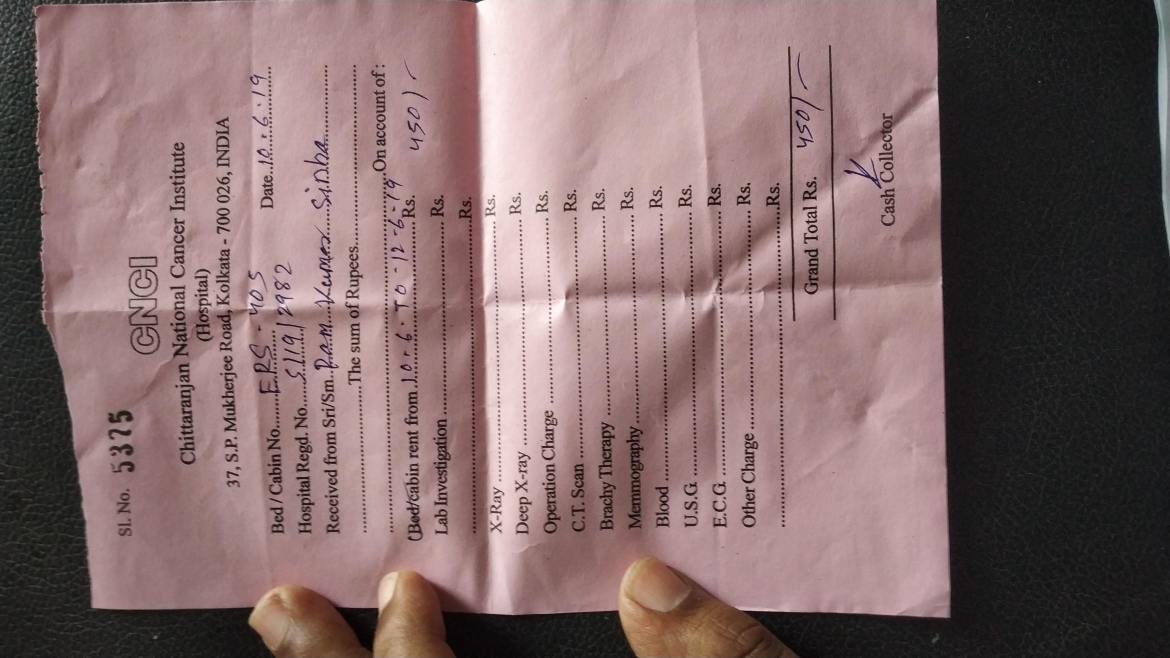 Sl. No. 5375
CNCI
Chittaranjan National Cancer Institute
(Hospital)
37, S.P. Mukherjee Road, Kolkata - 700 026, INDIA
Bed / Cabin No......ERS - 405 Date..10.6.19
Hospital Regd. No.....S119/2982
Received from Sri/Sm. Ram Kumar Sinha
The sum of Rupees
On account of :
(Bed/cabin rent from 10.6. TO - 12-6-19 Rs. 450/-
Lab Investigation Rs.
Rs.
X-Ray Rs.
Deep X-ray Rs.
Operation Charge Rs.
C.T. Scan Rs.
Brachy Therapy Rs.
Memmography Rs.
Blood Rs.
U.S.G. Rs.
E.C.G. Rs.
Other Charge Rs.
Rs.
Grand Total Rs. 450/-
Cash Collector